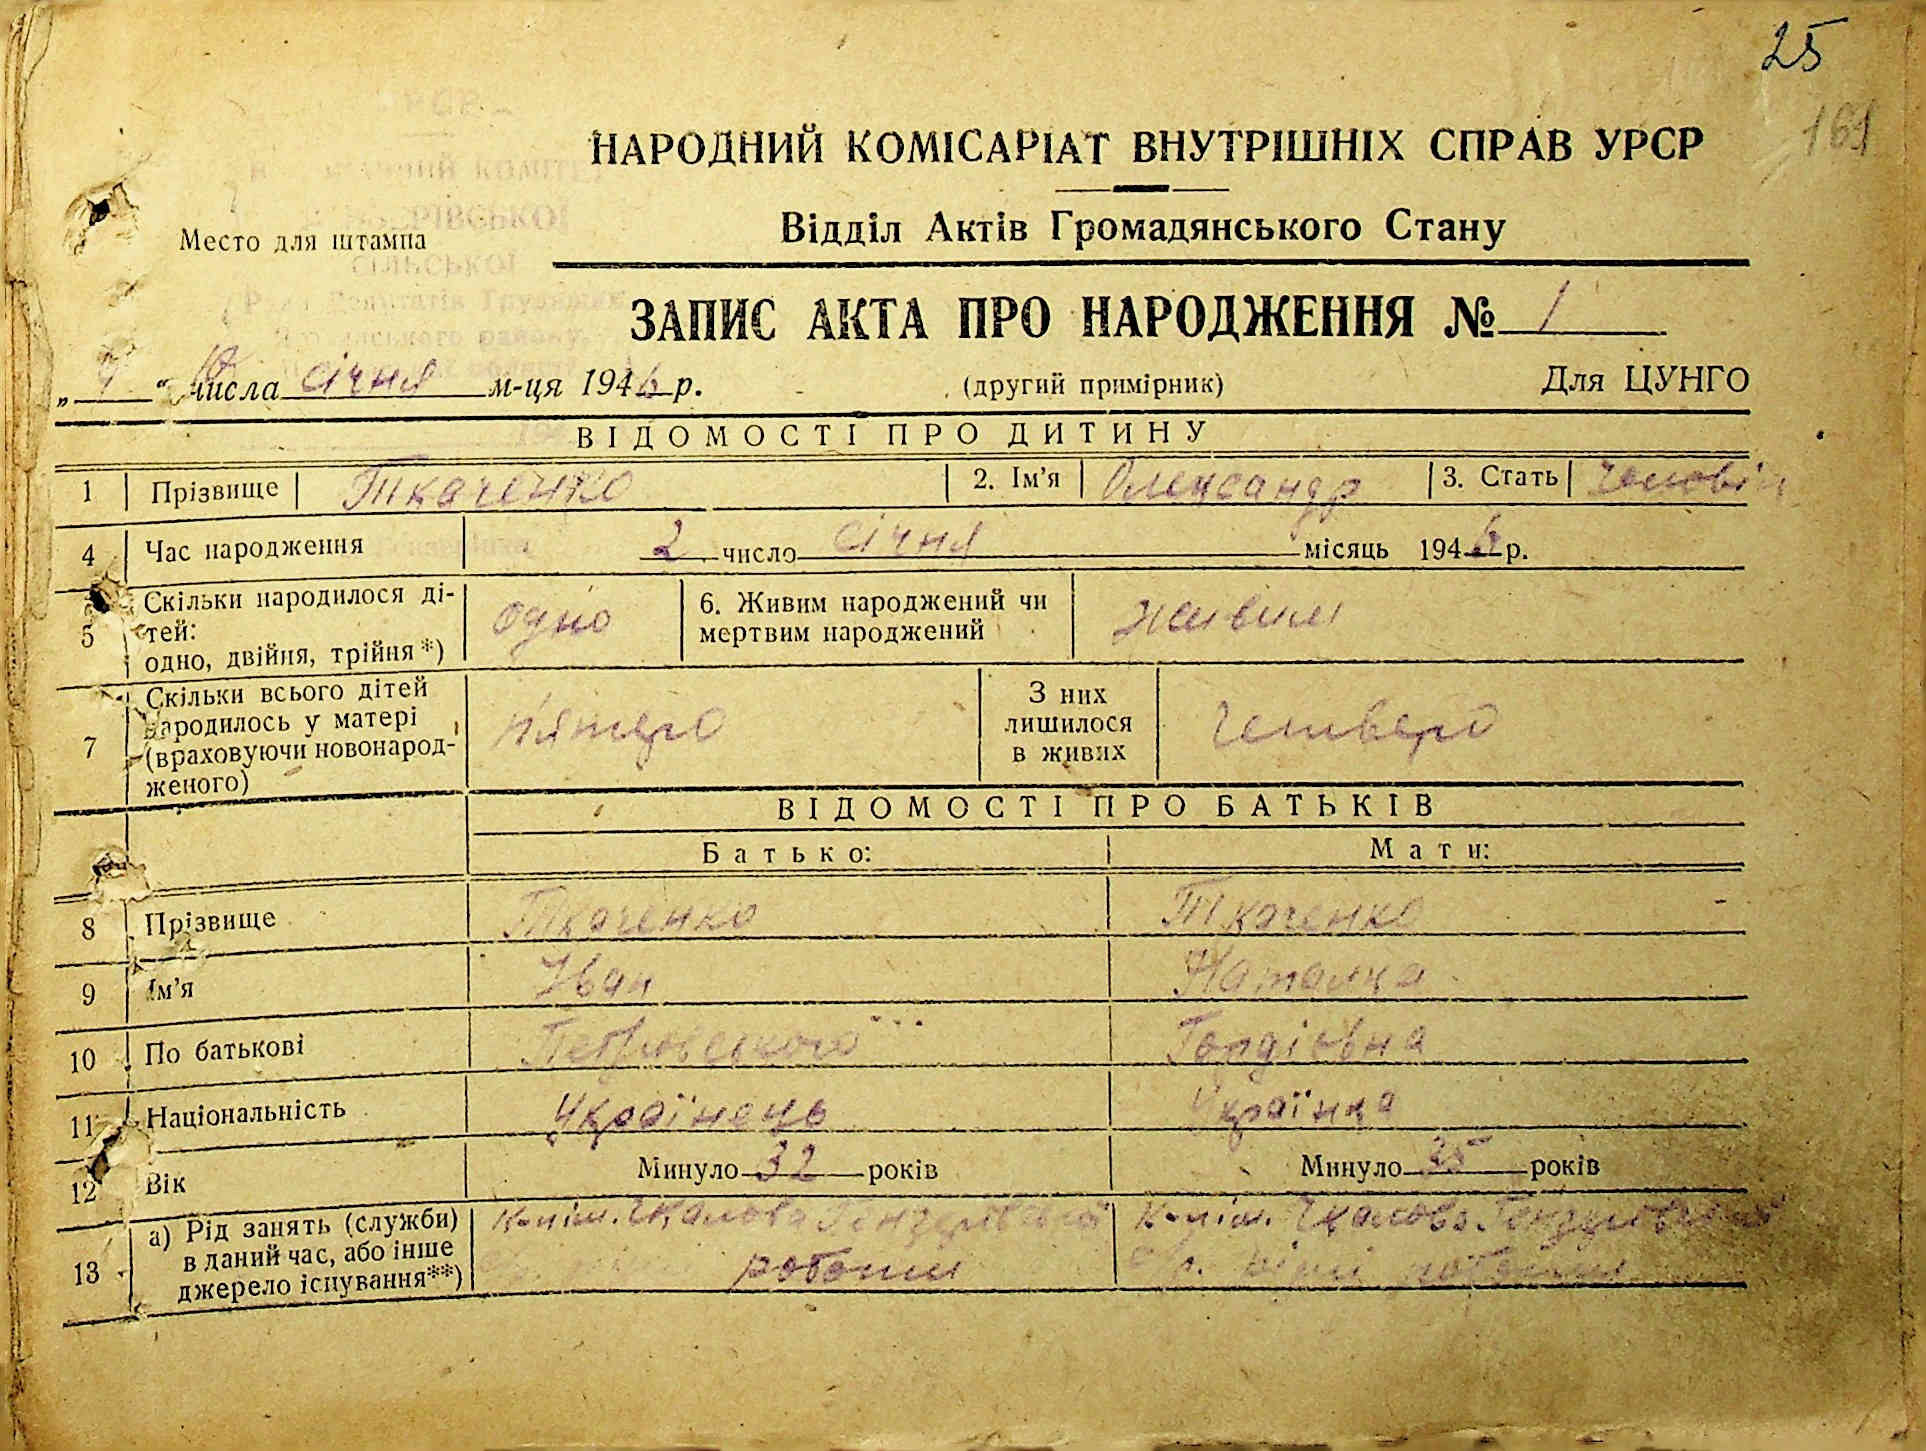 25
161
НАРОДНИЙ КОМІСАРІАТ ВНУТРІШНІХ СПРАВ УРСР
Місто для штампа
Відділ Актів Громадянського Стану
ЗАПИС АКТА ПРО НАРОДЖЕННЯ № 1
числа січня м-ця 1946 р. (другий примірник) Для ЦУНГО
ВІДОМОСТІ ПРО ДИТИНУ
1 Прізвище Ткаченко 2. Ім'я Олександр 3. Стать чоловік
4 Час народження 2 число січня місяць 1946 р.
5 Скільки народилося ді-
тей:
одно, двійня, трійня*) одно 6. Живим народжений чи
мертвим народжений живим
7 Скільки всього дітей
народилось у матері
(враховуючи новонарод-
женого) п'ятеро З них
лишилося
в живих четверо
ВІДОМОСТІ ПРО БАТЬКІВ
Батько: Мати:
8 Прізвище Ткаченко Ткаченко
9 Ім'я Іван Наталка
10 По батькові Гордіївна
11 Національність Українець Українка
12 Вік Минуло 32 років Минуло 35 років
13 а) Рід занять (служби)
в даний час, або інше
джерело існування**) к-п ім. Чкалова к-п ім. Чкалова